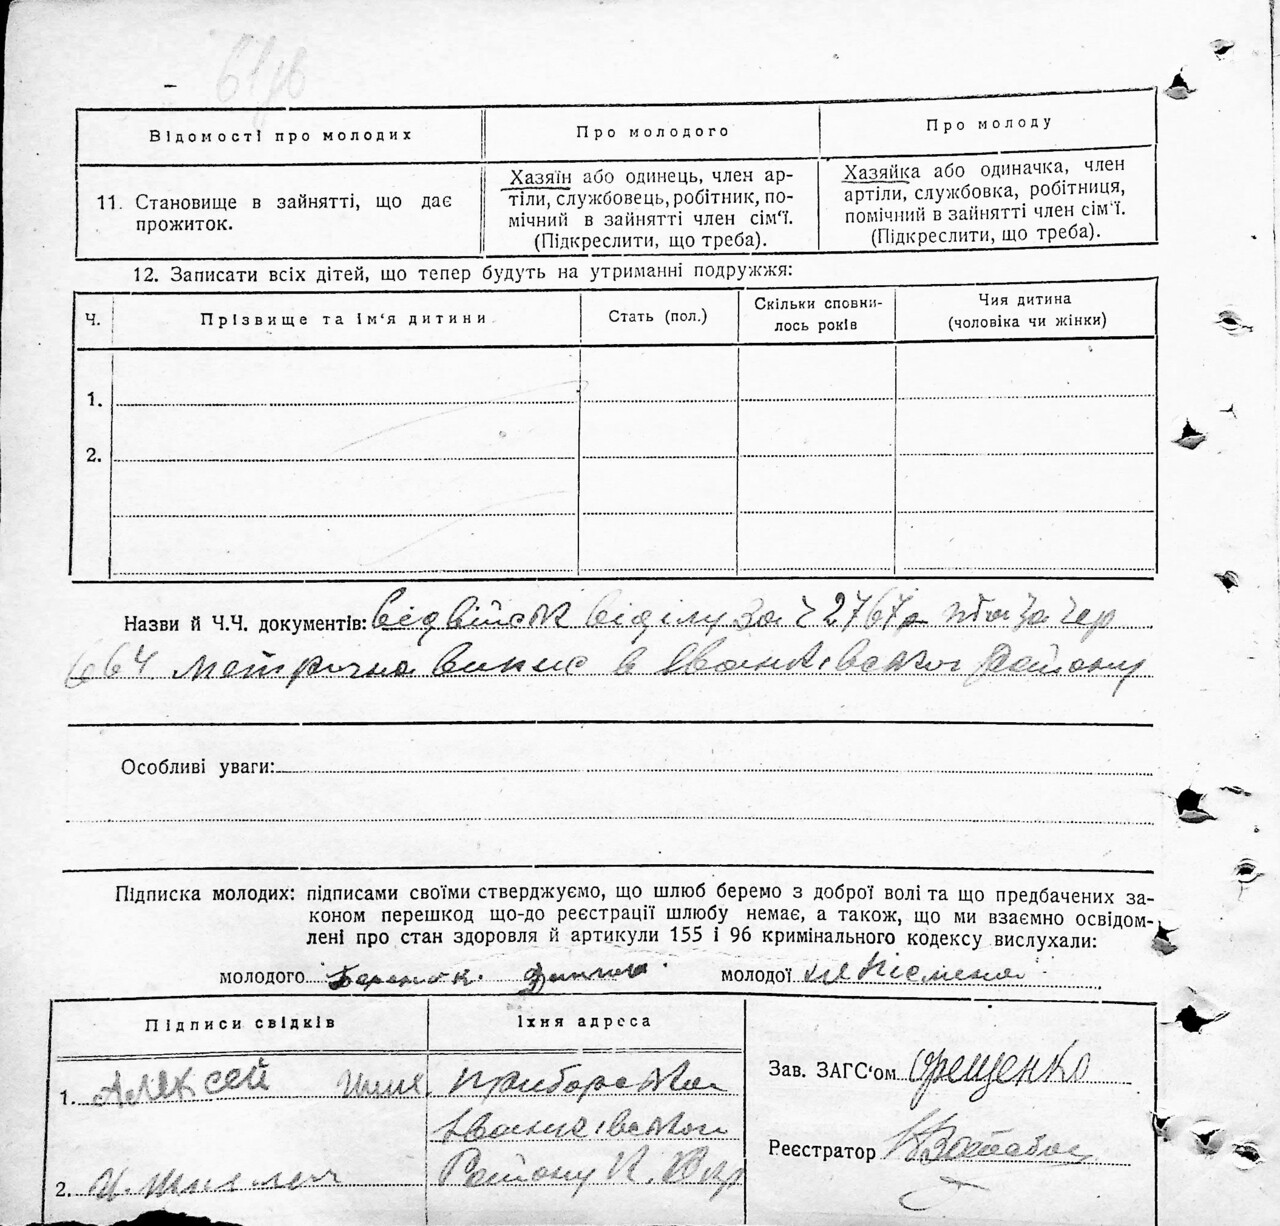 Відомості про молодих
Про молодого
Про молоду
11. Становище в зайнятті, що дає
прожиток.
Хазяїн або одинець, член ар-
тіли, службовець, робітник, по-
мічний в зайнятті член сім'ї.
(Підкреслити, що треба).
Хазяйка або одиначка, член
артіли, службовка, робітниця,
помічний в зайнятті член сім'ї.
(Підкреслити, що треба).
12. Записати всіх дітей, що тепер будуть на утриманні подружжя:
Ч.
Прізвище та ім'я дитини
Стать (пол.)
Скільки сповни-
лось років
Чия дитина
(чоловіка чи жінки)
1.
2.
Назви й Ч.Ч. документів: від військ відділу за 2767
664 метрична випис в Іванківського Району
Особливі уваги:
Підписка молодих: підписами своїми стверджуємо, що шлюб беремо з доброї волі та що предбачених за-
коном перешкод що-до реєстрації шлюбу немає, а також, що ми взаємно освідом-
лені про стан здоровля й артикули 155 і 96 кримінального кодексу вислухали:
молодого
молодої
Підписи свідків
Їхня адреса
1. Алексей
Іванківського
Району К.
2.
Зав. ЗАГС'ом
Реєстратор